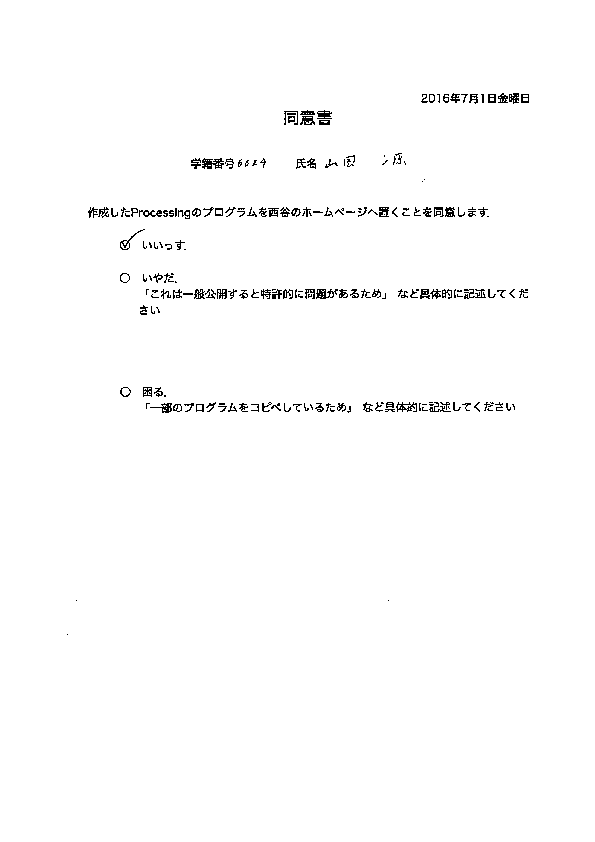 2016年7月1日金曜日
同意書
学籍番号 氏名 山
作成したProcessingのプログラムを西谷のホームページへ置くことを同意します.
いいっす.
いやだ.
「これは一般公開すると特許的に問題があるため」 など具体的に記述してくだ
さい
困る.
「一部のプログラムをコピペしているため」 など具体的に記述してください